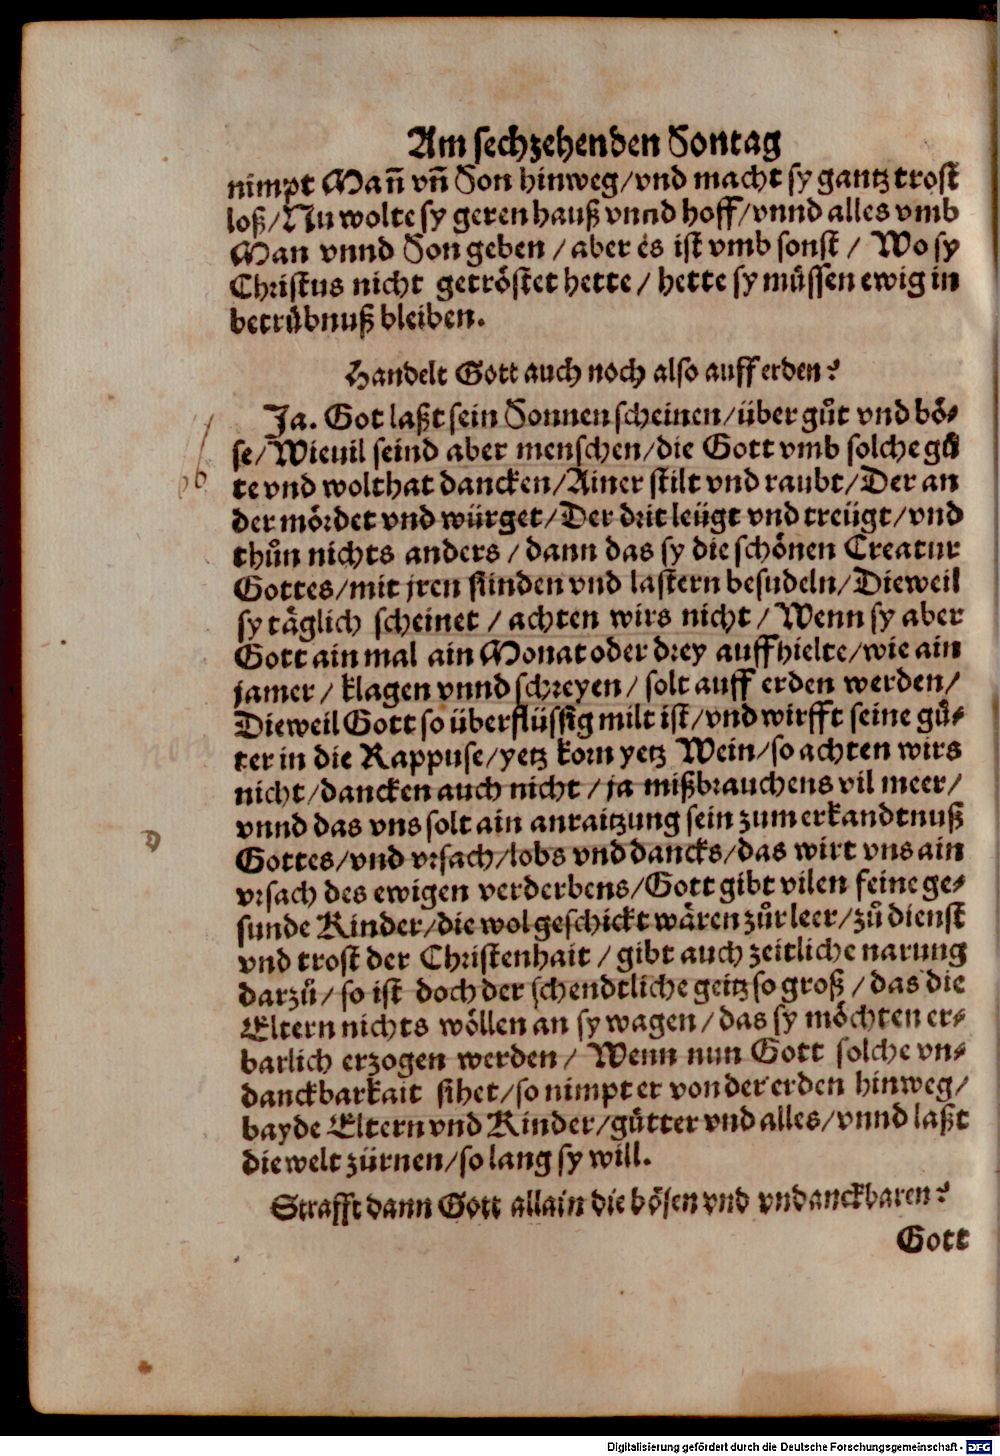 Am sechzehenden Sontag
nimpt Mañ vñ Son hinweg/vnd macht sy gantz trost
loß/Nu wolte sy geren hauß vnnd hoff/vnnd alles vmb
Man vnnd Son geben/aber es ist vmb sonst/ Wo sy
Christus nicht getröstet hette/ hette sy müssen ewig in
betrübnuß bleiben.
Handelt Gott auch noch also auff erden?
Ja. Got laßt sein Sonnen scheinen/über gůt vnd bö⸗
se/Wieuil seind aber menschen/die Gott vmb solche gů
te vnd wolthat dancken/Ainer stilt vnd raubt/Der an
der mördet vnd würget/Der drit leügt vnd treügt/vnd
thůn nichts anders/dann das sy die schönen Creatur
Gottes/mit jren sünden vnd lastern besudeln/Dieweil
sy täglich scheinet/achten wirs nicht/Wenn sy aber
Gott ain mal ain Monat oder drey auffhielte/wie ain
jamer/klagen vnnd schreyen/solt auff erden werden/
Dieweil Gott so überflüssig milt ist/vnd wirfft seine gü⸗
ter in die Rappuse/yetz korn yetz Wein/so achten wirs
nicht/dancken auch nicht/ja mißbrauchens vil meer/
vnnd das vns solt ain anraitzung sein zum erkandtnuß
Gottes/vnd vrsach/lobs vnd dancks/das wirt vns ain
vrsach des ewigen verderbens/Gott gibt vilen feine ge⸗
sunde Kinder/die wol geschickt wären zůr leer/zů dienst
vnd trost der Christenhait/gibt auch zeitliche narung
darzů/so ist doch der schendtliche geitz so groß/das die
Eltern nichts wöllen an sy wagen/das sy möchten er⸗
barlich erzogen werden/Wenn nun Gott solche vn⸗
danckbarkait sihet/so nimpt er von der erden hinweg/
bayde Eltern vnd Kinder/gütter vnd alles/vnnd laßt
die welt zürnen/so lang sy will.
Strafft dann Gott allain die bösen vnd vndanckbaren?
Gott
Digitalisierung gefördert durch die Deutsche Forschungsgemeinschaft - DFG